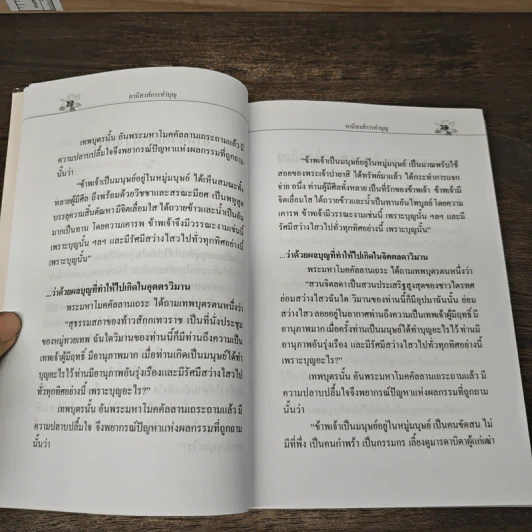 อานิสงส์การทำบุญ
เทพบุตรนั้น อันพระมหาโมคคัลลานเถระถามแล้ว มี
ความปลาบปลื้มใจจึงพยากรณ์ปัญหาแห่งผลกรรมที่ถูกถาม
นั้นว่า
“ข้าพเจ้าเป็นมนุษย์อยู่ในหมู่มนุษย์ ได้เห็นสมณะทั้ง
หลายผู้มีศีล ถึงพร้อมด้วยวิชชาและสรณะมียศ เป็นพหูสูต
บรรลุความสิ้นตัณหา มีจิตเลื่อมใส ได้ถวายข้าวและน้ำเป็นอัน
มากเป็นทาน โดยความเคารพ ข้าพเจ้าจึงมีวรรณะงามเช่นนี้
เพราะบุญนั้น ฯลฯ และมีรัศมีสว่างไสวไปทั่วทุกทิศอย่างนี้
เพราะบุญนั้น”
...ว่าด้วยผลบุญที่ทำให้ไปเกิดในอุตตรวิมาน
พระมหาโมคคัลลานเถระ ได้ถามเทพบุตรตนหนึ่งว่า
“สุธรรมสภาของท้าวสักกเทวราช เป็นที่นั่งประชุม
ของหมู่ทวยเทพ ฉันใดวิมานของท่านนี้ก็มีท่านถามความเป็น
เทพเจ้าผู้มีฤทธิ์ มีอานุภาพมาก เมื่อท่านเกิดเป็นมนุษย์ได้ทำ
อะไรไว้ ท่านมีอานุภาพอันรุ่งเรืองและมีรัศมีสว่างไสวไป
ทั่วทุกทิศอย่างนี้ เพราะบุญอะไร?”
เทพบุตรนั้น อันพระมหาโมคคัลลานเถระถามแล้ว มี
ความปลาบปลื้มใจ จึงพยากรณ์ปัญหาแห่งผลกรรมที่ถูกถาม
นั้นว่า
อานิสงส์การทำบุญ
“ข้าพเจ้าเป็นมนุษย์อยู่ในหมู่มนุษย์ เป็นมาณพรับใช้
สอยของพระเจ้าปายาสิ ได้ทรัพย์มาแล้ว ได้กระทำการแจก
จ่าย อนึ่ง ท่านผู้มีศีลทั้งหลาย เป็นที่รักของข้าพเจ้า ข้าพเจ้า มี
จิตเลื่อมใส ได้ถวายข้าวและน้ำเป็นทานอันไพบูลย์ ด้วยความ
เคารพ ข้าพเจ้ามีวรรณะงามเช่นนี้ เพราะบุญนั้น ฯลฯ และมี
รัศมีสว่างไสวไปทั่วทุกทิศอย่างนี้ เพราะบุญนั้น”
...ว่าด้วยผลบุญที่ทำให้ไปเกิดในจิตตลดาวิมาน
พระมหาโมคคัลลานเถระ ได้ถามเทพบุตรตนหนึ่งว่า
“สวนจิตลดา เป็นสวนประเสริฐสูงสุดของชาวไตรทศ
ย่อมสว่างไสวฉันใด วิมานของท่านนี้ก็มีอุปมาฉันนั้น ย่อม
สว่าง ไสว ลอยอยู่ในอากาศท่านถึงความเป็นเทพเจ้าผู้มีฤทธิ์ มี
อานุภาพมาก เมื่อครั้งท่านเป็นมนุษย์ได้ทำบุญอะไรไว้ ท่านมี
อานุภาพอันรุ่งเรือง และมีรัศมีสว่างไสวไปทั่วทุกทิศอย่างนี้
เพราะบุญอะไร?”
เทพบุตรนั้น อันพระมหาโมคคัลลานเถระถามแล้ว มี
ความปลาบปลื้มใจ จึงพยากรณ์ปัญหาแห่งผลกรรมที่ถูกถาม
นั้นว่า
“ข้าพเจ้าเป็นมนุษย์อยู่ในหมู่มนุษย์ เป็นคนขัดสน ไม่
มีที่พึ่ง เป็นคนกำพร้า เป็นกรรมกร เลี้ยงดูมารดาบิดาผู้แก่เฒ่า